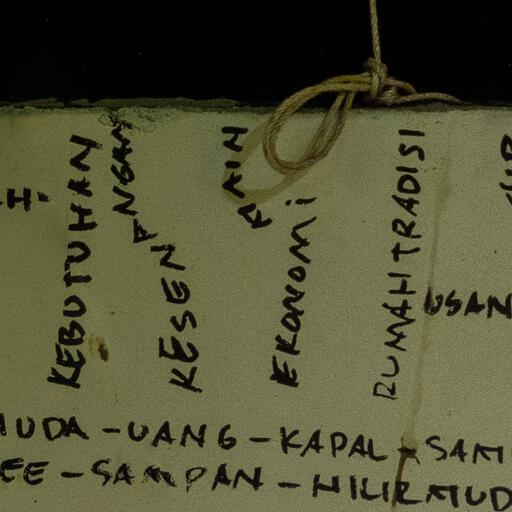 KEBUTUHAN
KESEN
EKONOMI
RUMAH TRADISI
USAN
UDA - UANG - KAPAL - SAM
EE - SAMPAN - HILIR MUD